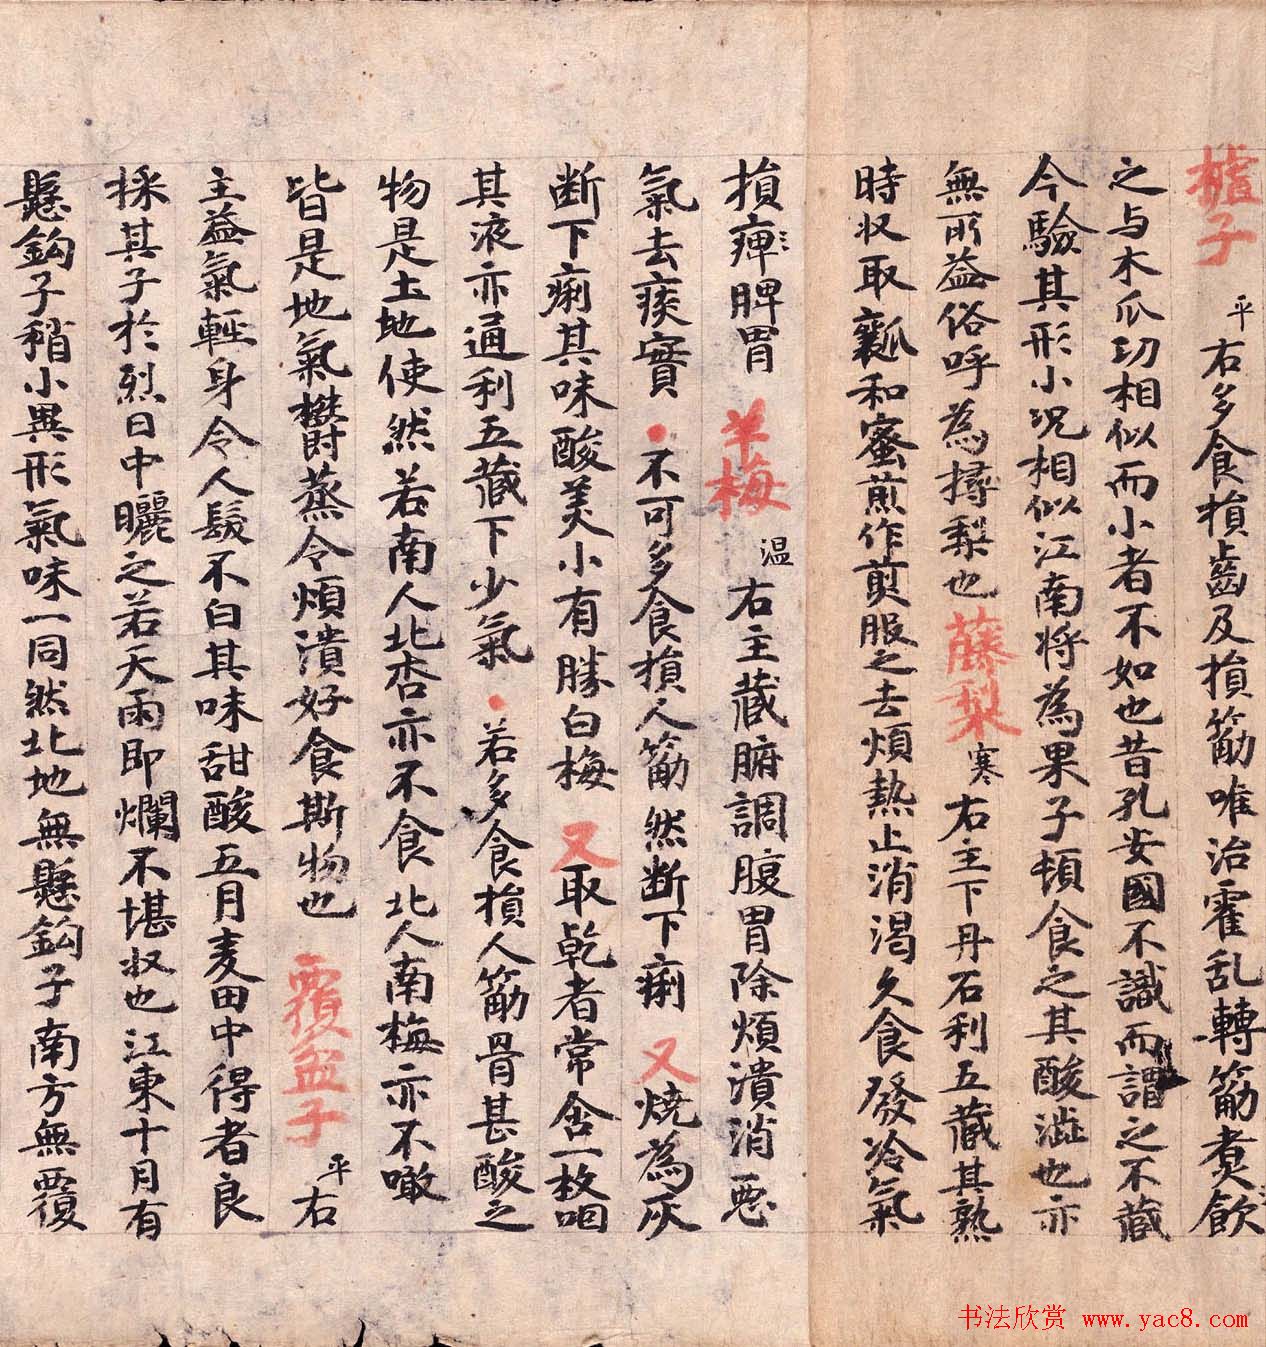 樝子平右多食損齒及損筋唯治霍乱轉筋煑飲
之与木爪功相似而小者不如也昔孔安國不識而謂之不藏
今驗其形小況相似江南將為果子頓食之其酸澁也亦
無所益俗呼為㯌梨也藤梨寒右主下丹石利五藏其熟
時収取瓤和蜜煎作煎服之去煩熱止消渴久食發冷氣
損脾胃羊梅温右主藏腑調腹胃除煩潰消惡
氣去痰實不可多食損人筋然断下痢又燒為灰
断下痢其味酸美小有勝白梅又取乾者常含一枚咽
其液亦通利五藏下少氣若多食損人筋骨甚酸之
物是土地使然若南人北杏亦不食北人南梅亦不噉
皆是地氣欝蒸令煩潰好食斯物也覆盆子平右
主益氣輕身令人髮不白其味甜酸五月麦田中得者良
採其子於烈日中曬之若天雨即爛不堪収也江東十月有
懸鈎子稍小異形氣味一同然北地無懸鈎子南方無覆
书法欣赏 www.yac8.com